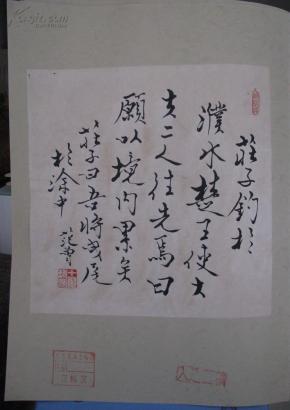 莊子釣於
濮水楚王使大
夫二人往先焉曰
願以境內累矣
莊子曰吾將曳尾
於塗中
范曾